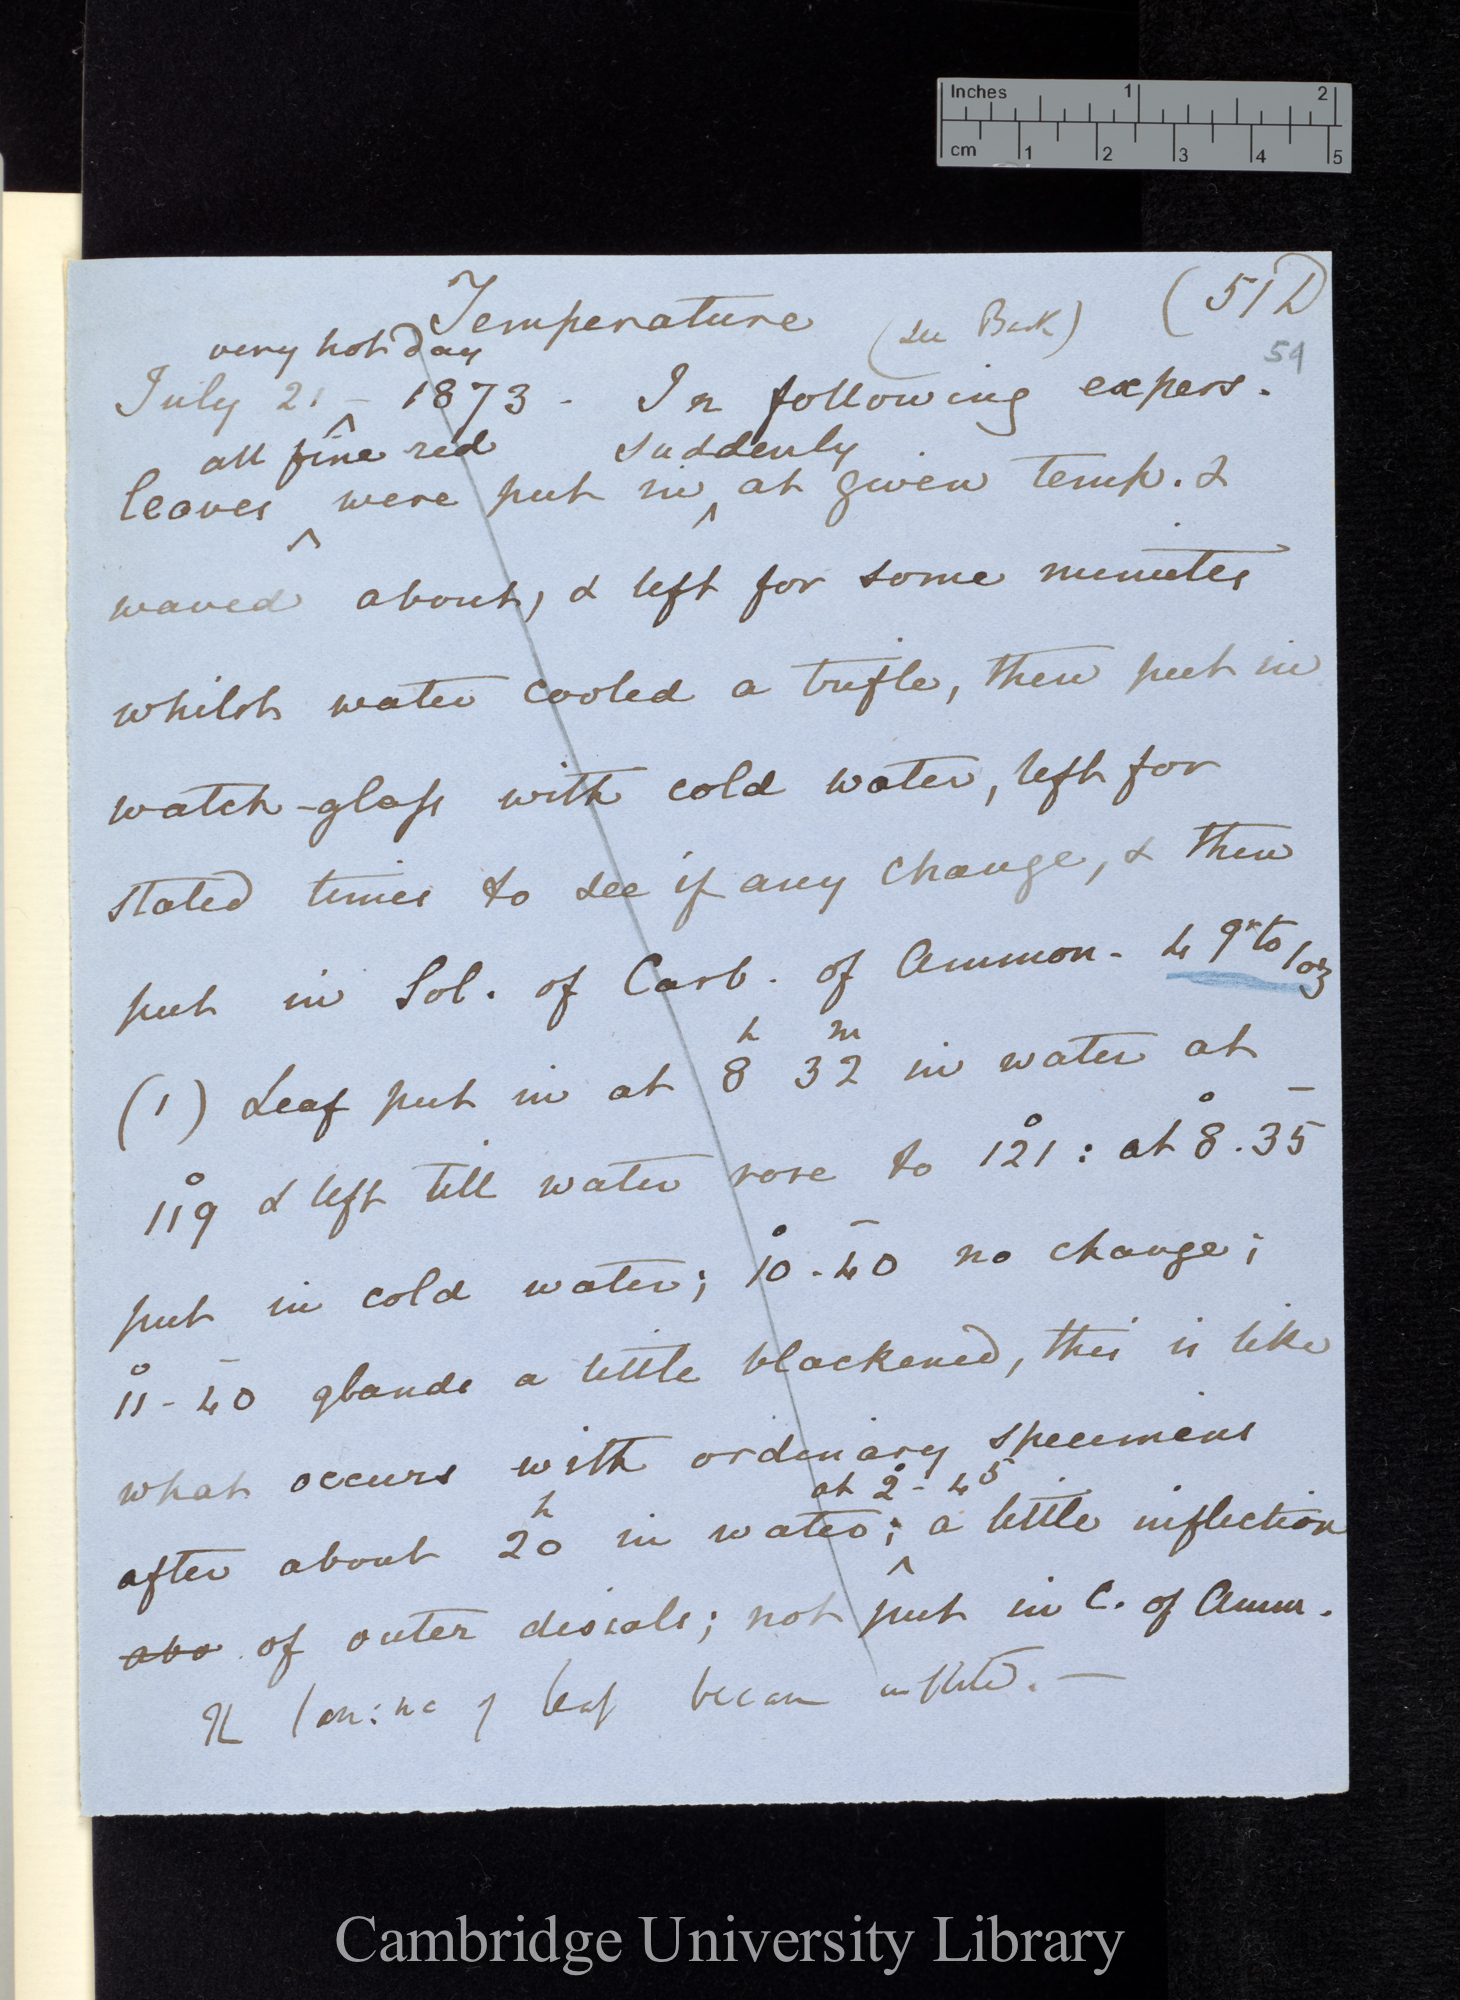 Inches 1 2
cm 1 2 3 4 5
Temperature (see Back) (51 D)
54
very hot day
July 21 - 1873 - In following expers.
all fine red suddenly
leaves ^ were put in ^ at given temp. &
waved about, & left for some minutes
whilst water cooled a trifle, then put in
watch-glass with cold water, left for
stated times to see if any change, & then
put in Sol. of Carb. of Ammon - 4 gr to 1 oz
(1) Leaf put in at 8h 32m in water at
119° & left till water rose to 121°: at 8°.35'
put in cold water; 10°.40' no change;
11°-40' glands a little blackened, this is like
what occurs with ordinary specimens
at 2°-45
after about 20h in water; ^ a little inflection
abo of outer discals; not put in C. of Amm.
The lamina of leaf became inflected. —
Cambridge University Library